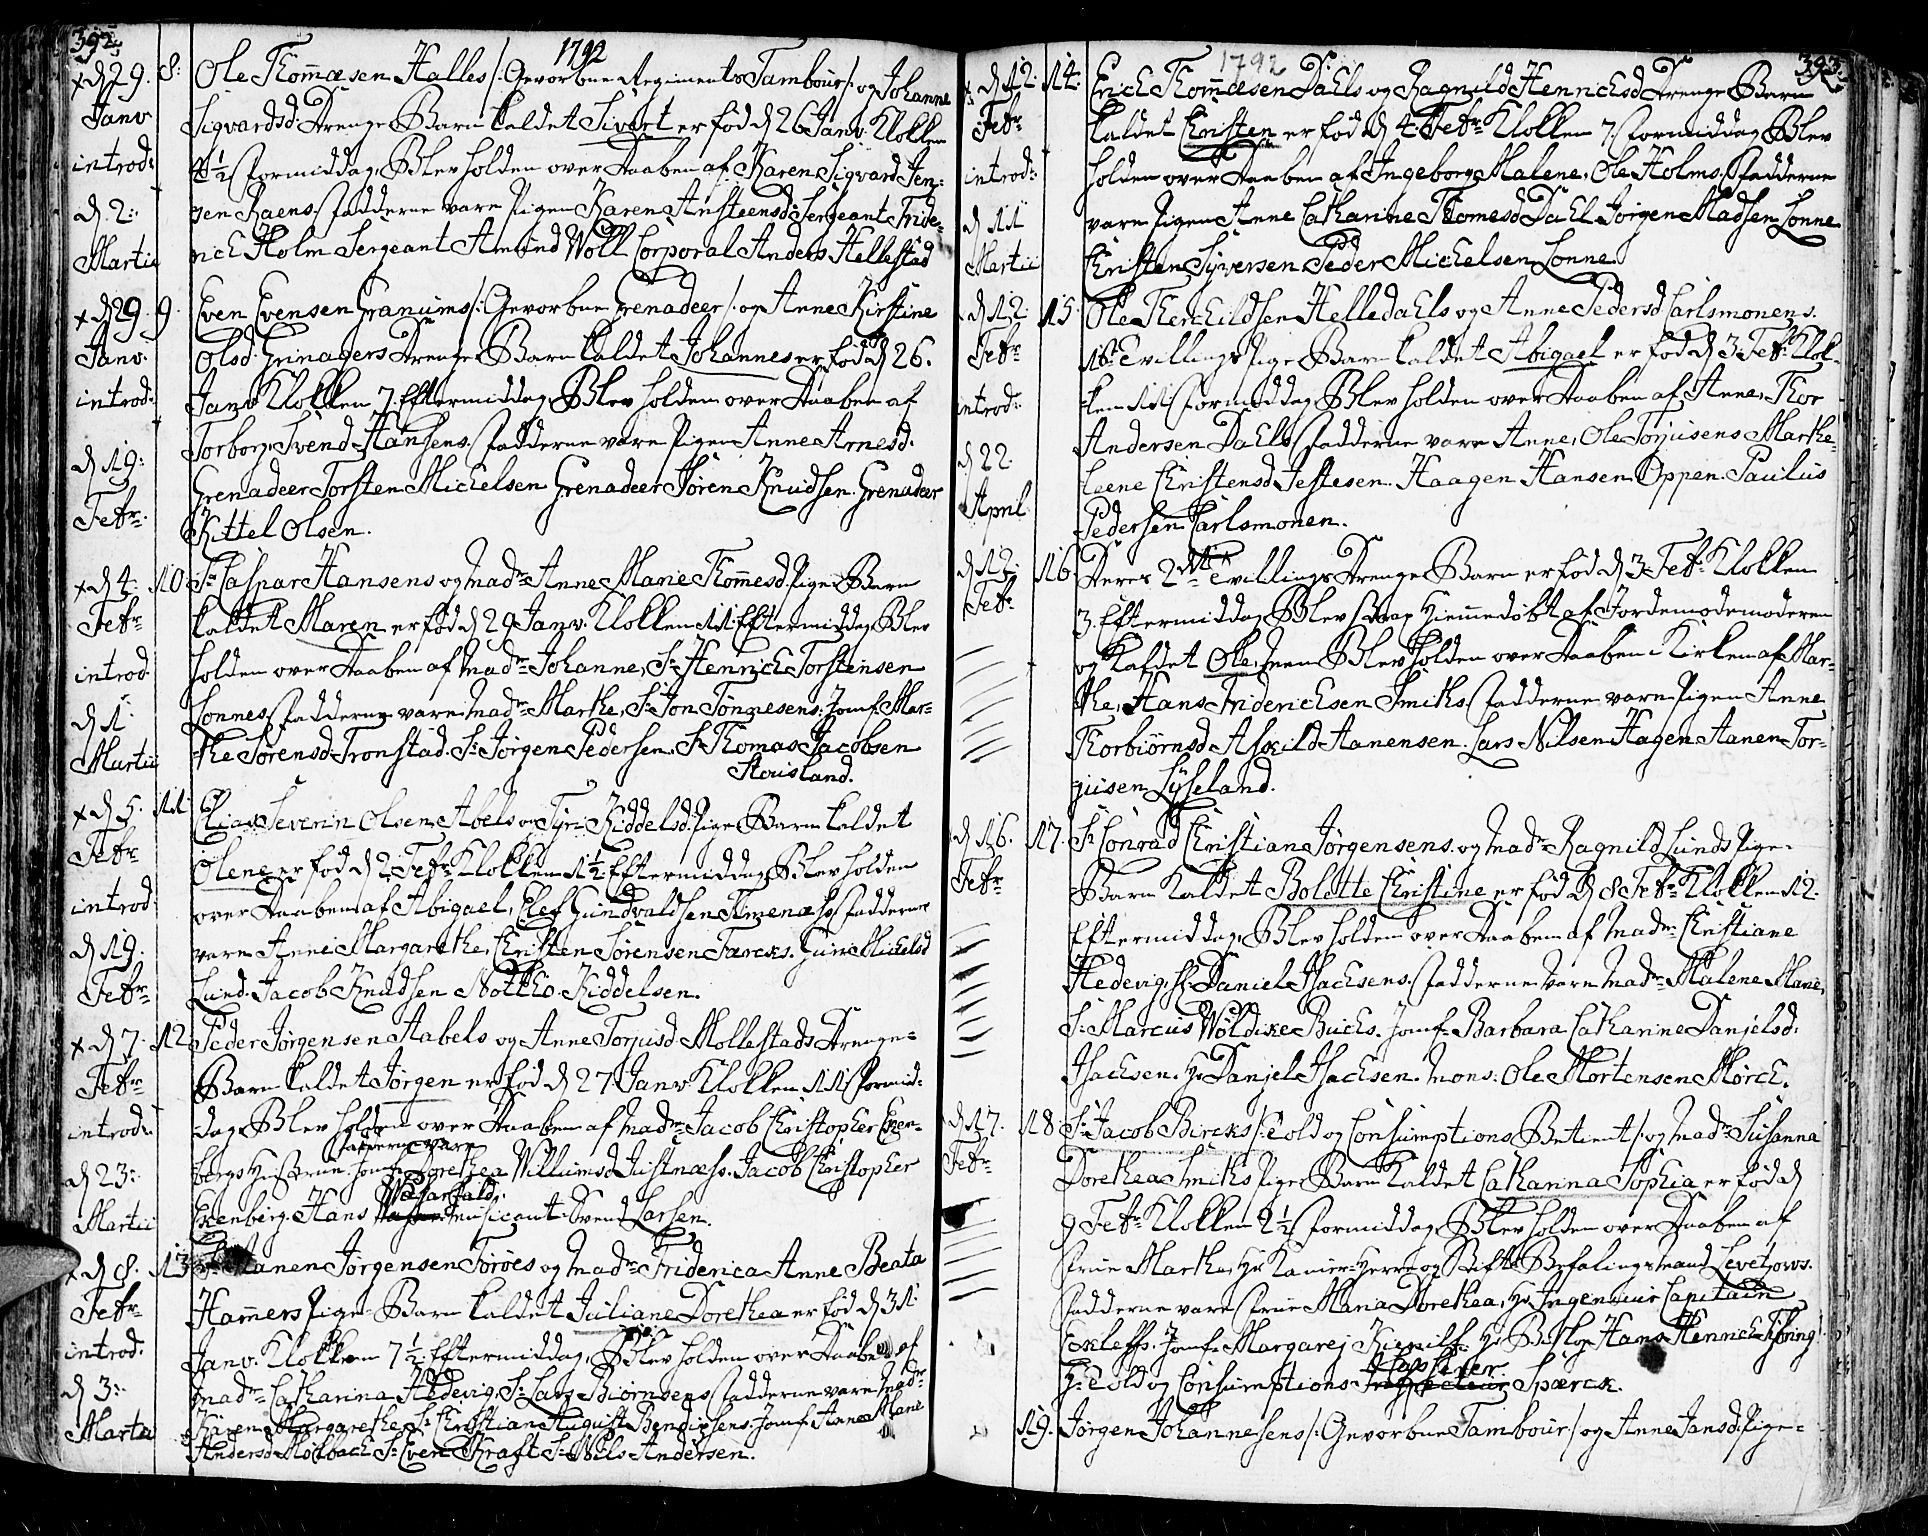 392.
1792
x d 29. 8. Ole Thommæsen Halles /: Gevorbne Regiments Tambour /: og Johanne
Janv. Sigvardsd. Drenge Barn kaldet Sivert er fød d 26 Janv. Klokken
introd: 4½ Formiddag, Blev holden over Daaben af Karen Sigvard Jen-
d. 2: gen Raens, Fadderne vare Pigen Karen Aristeensd: Sergeant Fride-
Martii rich Holm Sergeant Amund Woll Corporal Anders Hellestad
x d 29. 9. Even Evensen Granums /: Gevorbne Grenadeer /: og Anne Kirstine
Janv. Olsd. Grinagers Drenge Barn kaldet Johannes er fød d 26.
introd: Janv. Klokken 7. Eftermiddag, Blev holden over Daaben af
d 19: Torborg, Svend Hansens. Fadderne vare Pigen Anne Arnesd.
Grenadeer Torsten Michelsen Grenadeer Søren Knudsen. Grenadeer
Febr. Kittel Olsen.
x d 4. 10. Sr Caspar Hansens og Madm Anne Marie Thomesd. Pige Barn
Febr. kaldet Maren er fød d 29 Janv. Klokken 11. Eftermiddag Blev
introd. holden over Daaben af Madm Johanne, Sr Henrich Torstensen
d 1. Lonnes, Fadderne vare Madm Marthe, Sr Jon Tønnesens: Jomf. Mar-
Martii the Sørensd Tronstad. Sr Jørgen Pedersen. Sr Thomas Jacobsen
Stousland.
x d 5. 11. Elias Severin Olsen Abels og Siri Kiddelsd. Pige Barn kaldet
Febr. Olene er fød d 2. Febr. Klokken 1½ Eftermiddag, Blev holden
introd. over Daaben af Abigael, Elef Gundvaldsen Timenæs, Fadderne
d 19. vare Anne Margarethe, Christen Sørensen Færcks. Guri Michelsd
Febr. Lund. Jacob Knudsen Notkio Kiddelsen.
x d 7. 12. Peder Jørgensen Aabels og Anne Torjusd Mollestads Drenge-
Febr. Barn kaldet Jørgen er fød d 27 Janv. Klokken 11. Formid-
introd: dag, Blev holden over Daaben af Madm Jacob Christopher Exen-
fadderne vare
d 23: bergs Hustrue Jomf. Dorethea Willumsd Justnæss. Jacob Christopher
Martii Exenberg. Hans Musicant Svend Larsen.
x d 8. 13. Sr Aanen Jørgensen Torøes og Madm Friderica Anne Beata
Febr. Hamers Pige-Barn kaldet Juliane Dorethea er fød d 31.
introd. Janv. Klokken 7½ Eftermiddag, Blev holden over Daaben af
d 3: Madm Catharina Hedevig, Sr Lars Biørnsens, Fadderne vare Madm
Martii Karen Margarethe, Sr Christian August Bendixsens. Jomf. Anne Marie
Andersd Molbach Sr Even Kraft Sr Nils Andersen.
393.
1792
x d 12. 14. Erich Thommæsen Dahls og Ragnild Henrichsd Drenge Barn
Febr. kaldet Christen er fød d 4. Febr. Klokken 7. Formiddag Blev
introd: holden over Daaben af Ingeborg Malene, Ole Holms, Fadderne
d 11 vare Pigen Anne Catharine Thomesd Dahl Jørgen Madsen Lonne
Martii Christen Syversen Peder Michelsen Lonne.
d 12. 15. Ole Therchildsen Helledahls og Anne Pedersd Carlsmonens.
Febr. 1ste Tvillings Pige Barn kaldet Abigael er fød d 3. Febr. Klok-
introd: ken 11. Formiddag Blev holden over Daaben af Anne, Thor
d 22. Andersen Dahls, Fadderne vare Anne, Ole Torjusens Marthe-
April leene Christensd Jestesen. Haagen Hansen Oppen. Paulus
Pedersen Carlsmonen.
d 12. 16. Deres 2den Tvillings Drenge Barn er fød d 3. Febr. Klokken
Febr. 3. Eftermiddag, Blev strax Hiemmedøbt af Jordemodemoderen
og Kaldet Ole, men Blev holden over Daaben i Kirken af Mar-
the, Hans Friderichsen Smiths. Fadderne vare Pigen Anne
Thorbiørnsd Askild Aanensen. Lars Nilsen Hagen Aanen Tor-
jusen Lyseland.
d 16. 17. Sr Conrad Christian Jørgensens og Madm Ragnild Lunds Pige-
Febr. Barn kaldet Bolette Christine er fød d 8 Febr. Klokken 12.
Eftermiddag, Blev holden over Daaben af Madm Christiane
Hedevig, Hr Daniel Isachsens. Fadderne vare Madm Malene Marie,
Sr Marcus Wøldike Buchs. Jomf. Barbara Catharine Danjelsd.
Isachsen. Hr Danjel Isachsen. Mons: Ole Mortensen Mørch.
d 17. 18. Sr Jacob Bircks /: Told og Consumptions Betient /: og Madm Susanna
Febr. Dorethea Smiths Pige Barn kaldet Catharina Sophia er fød d
9 Febr. Klokken 2½ Formiddag, Blev holden over Daaben af
Frue Marthe, Hr Kamer-Herre og Stifts Befalingsmand Levetzows.
Fadderne vare Frue Maria Dorethea, Hr Ingenieur Capitain
Jomf. Margarej Hr Bishop Hans Henrich Tybring
Kasserer
Hr Told og Consumptions Inspecteur Spærck.
19. Jørgen Johannesens /: Gevorbne Tambour /: og Anne Jansd. Pige-